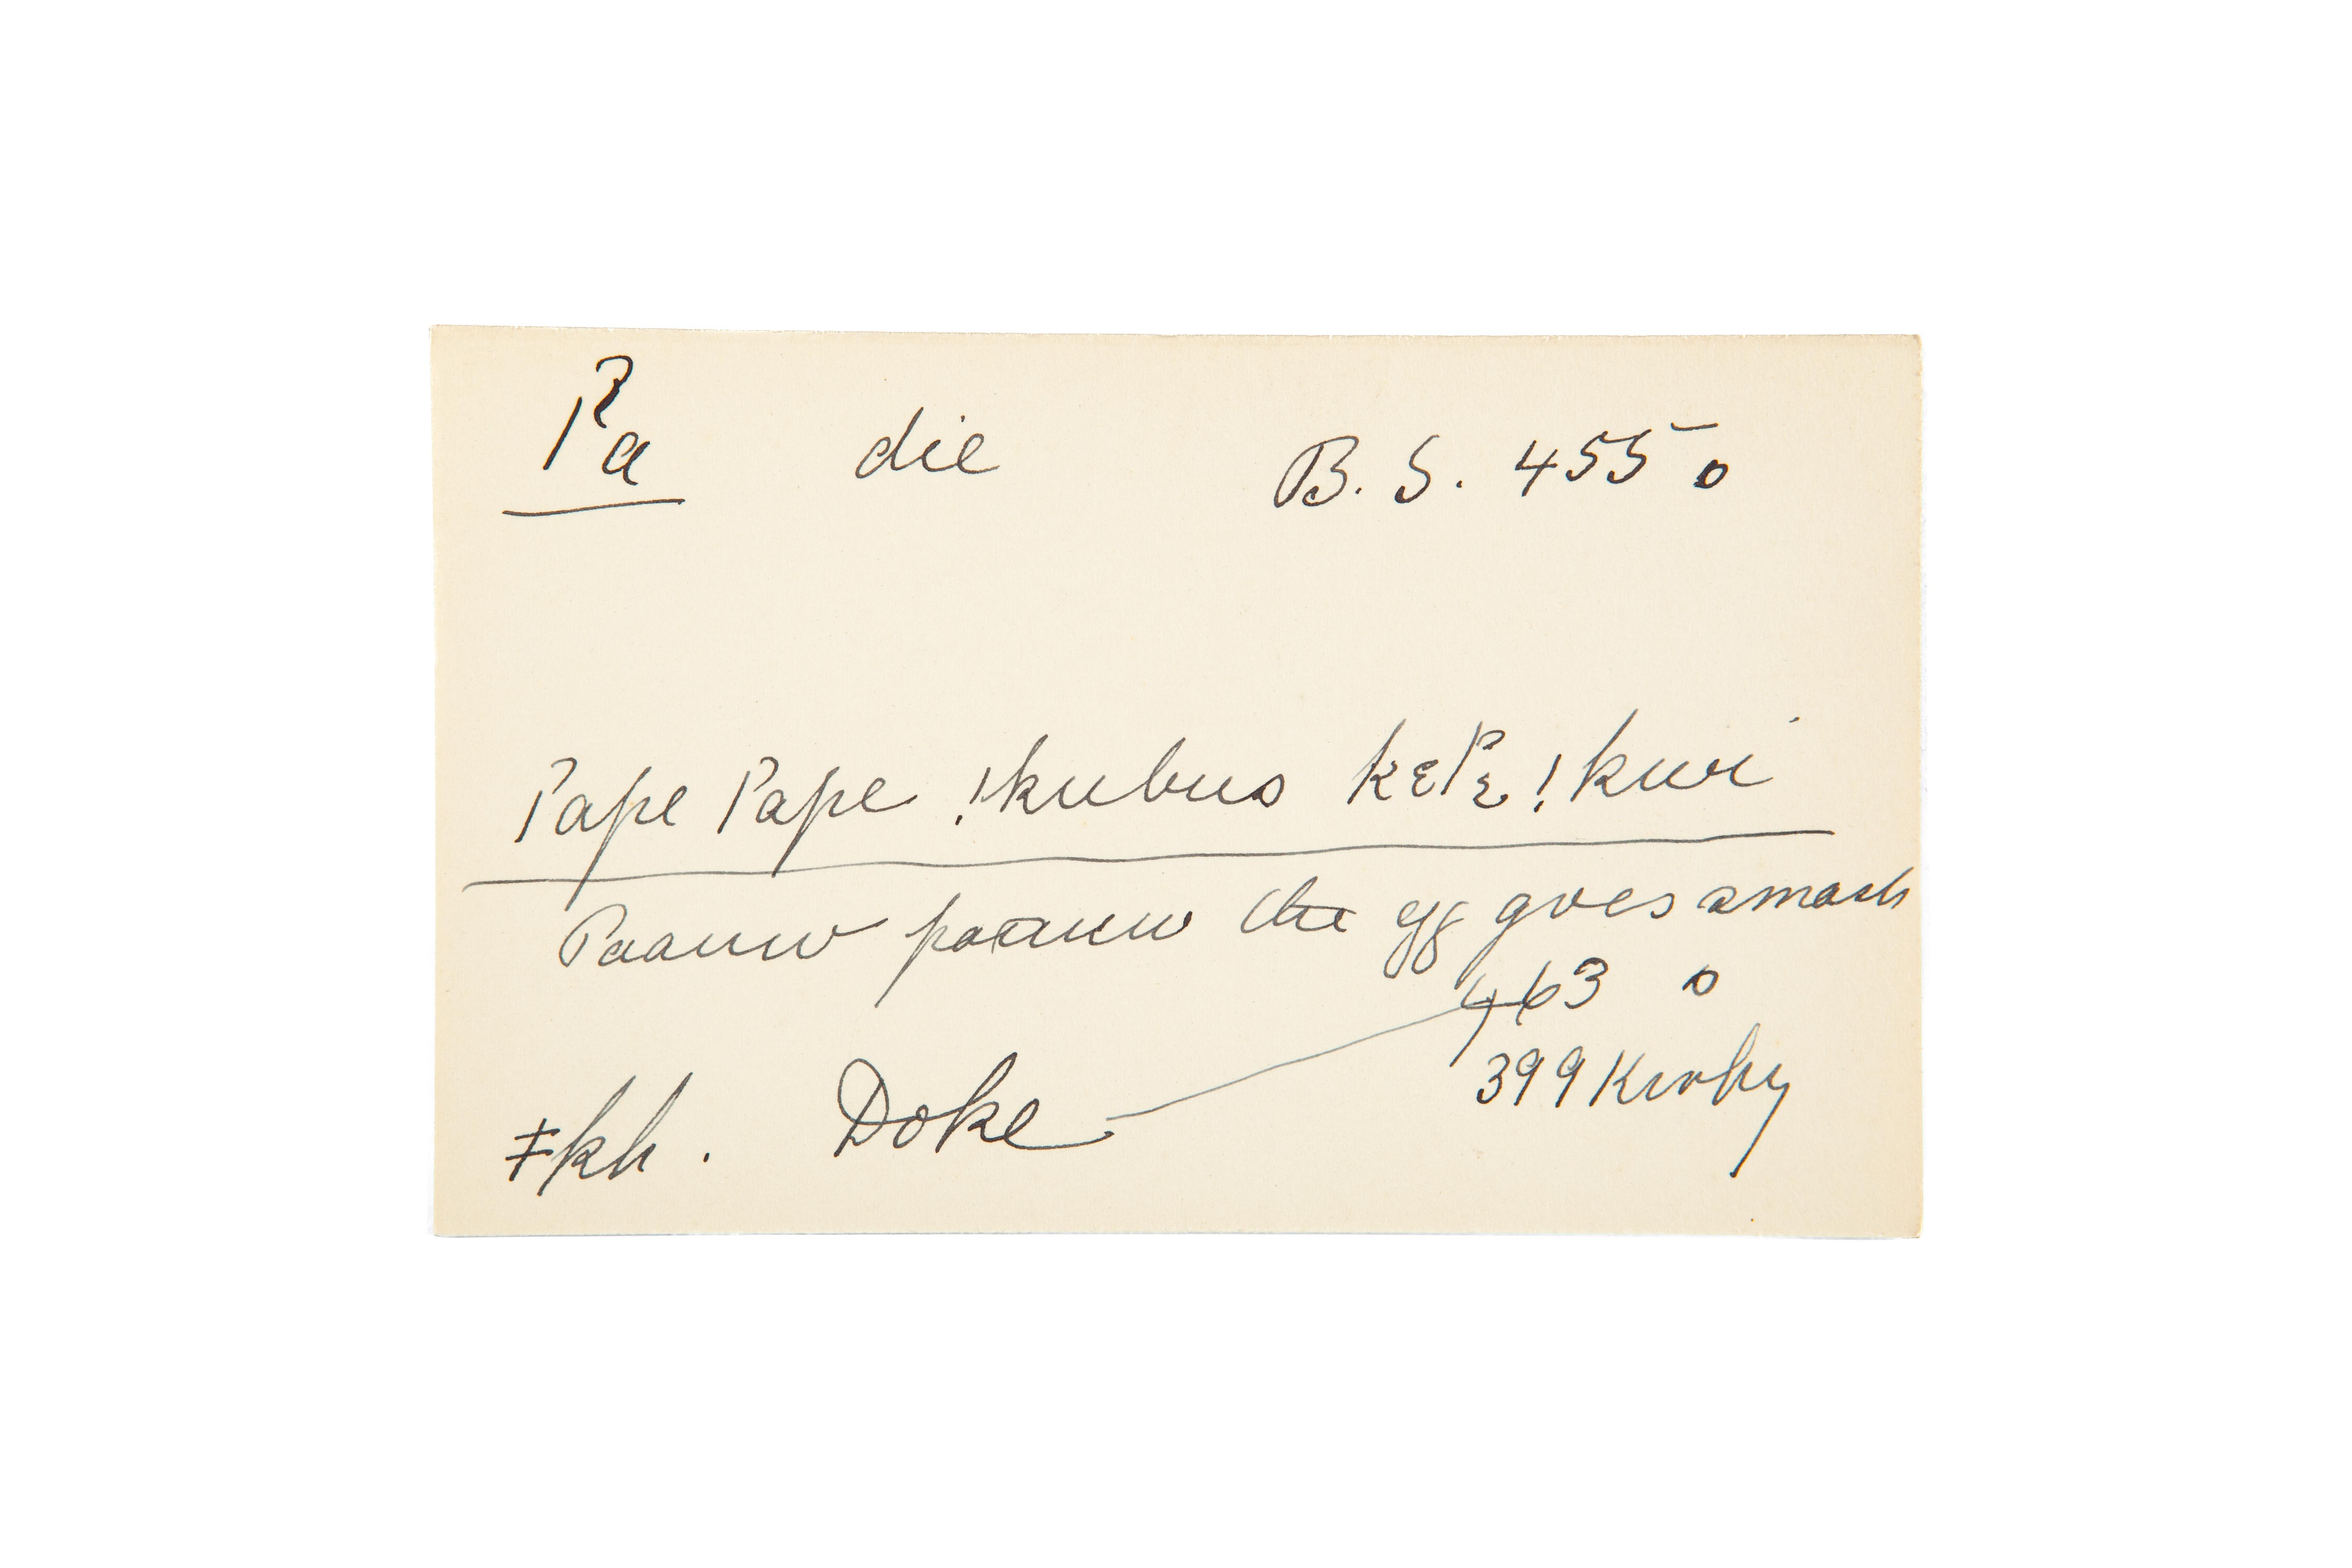 ǀʔa die B. S. 455 o
ǀʔape ǀʔape !kubus kɛǀʔɛ !kwi
Paauw paauw the egg goes smash
463 o
399 Kirby
ǂkh. Doke